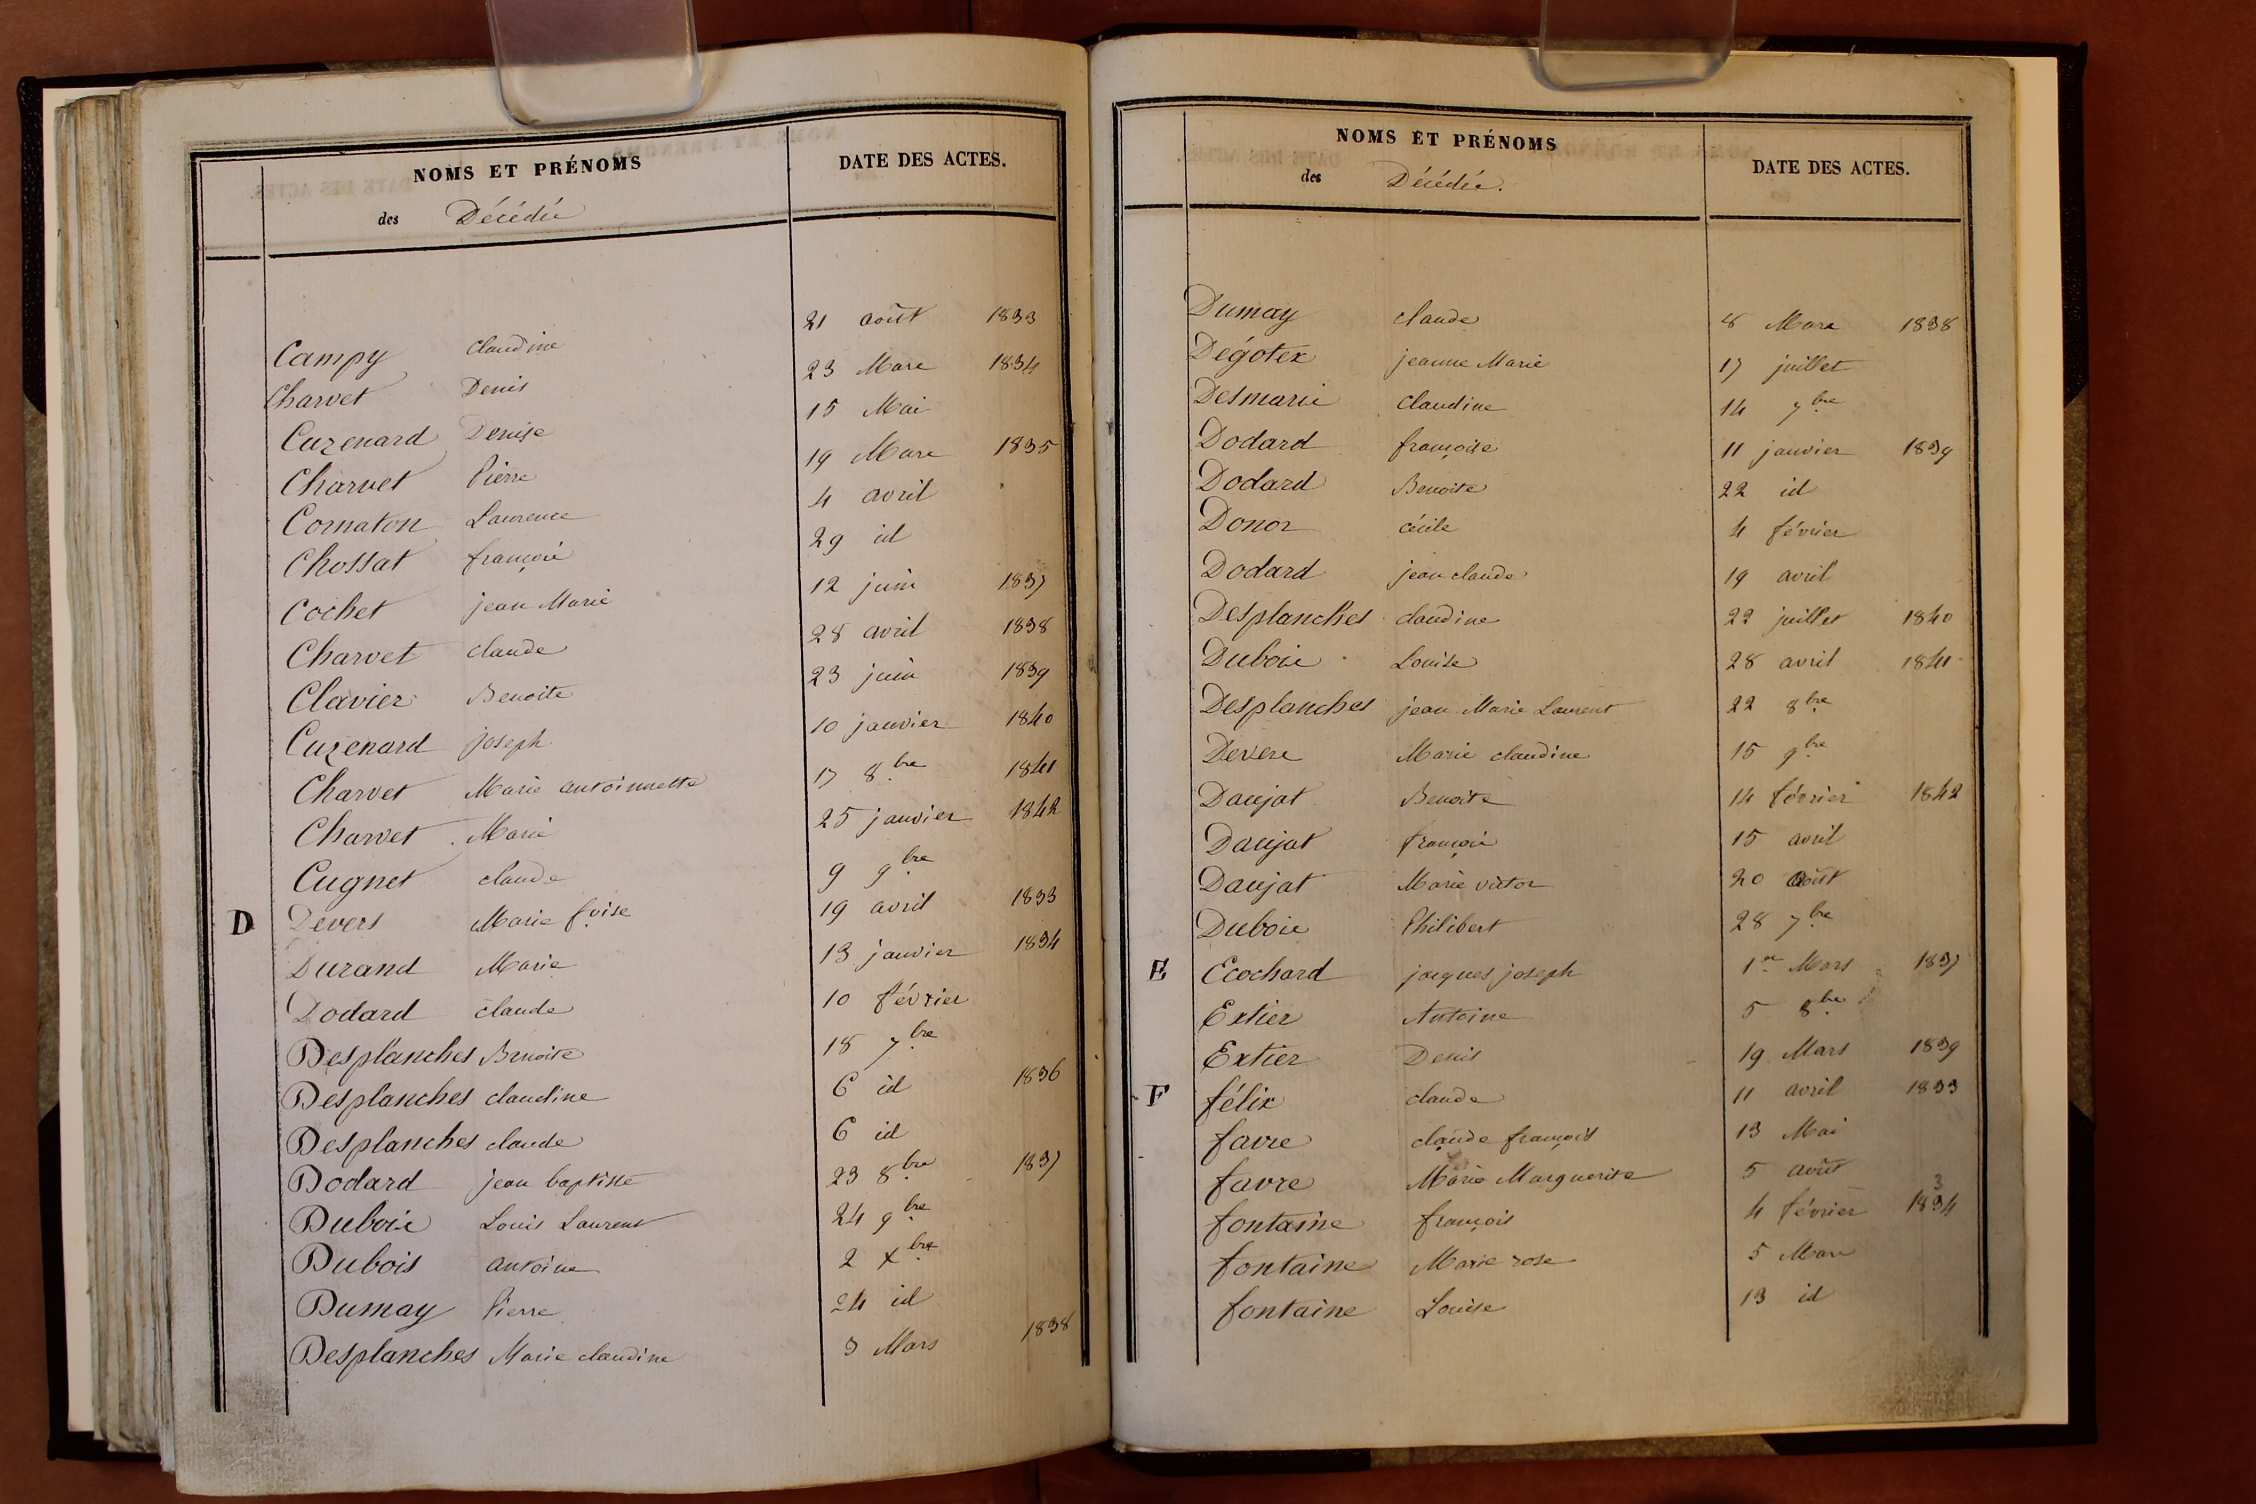 NOMS ET PRÉNOMS DATE DES ACTES.
des Décédés
Campy Claudine 21 août 1833
Charvet Denis 23 Mars 1834
Cuzenard Denise 15 Mai
Charvet Pierre 19 Mars 1835
Cornaton Laurence 4 avril
Chossat françois 29 id
Cochet jean Marie 12 juin 1837
Charvet claude 28 avril 1838
Clavier Benoite 23 juin 1839
Cuzenard joseph 10 janvier 1840
Charvet Marie antoinnette 17 8bre 1841
Charvet Marie 25 janvier 1842
Cugnet claude 9 9bre
D Devers Marie fçoise 19 avril 1833
Durand Marie 13 janvier 1834
Dodard claude 10 février
Desplanches Benoite 18 7bre
Desplanches claudine 6 id 1836
Desplanches claude 6 id
Dodard jean baptiste 23 8bre 1837
Dubois Louis Laurent 24 9bre
Dubois antoine 2 xbre
Dumay Pierre 24 id
Desplanches Marie claudine 3 Mars 1838
NOMS ET PRÉNOMS DATE DES ACTES.
des Décédés.
Dumay claude 8 Mars 1838
Dégotex jeanne Marie 17 juillet
Desmaris Claudine 14 7bre
Dodard françoise 11 janvier 1839
Dodard Benoite 22 id
Donor cécile 4 février
Dodard jean claude 19 avril
Desplanches claudine 22 juillet 1840
Dubois Louise 28 avril 1841
Desplanches jean Marie Laurent 22 8bre
Devers Marie claudine 15 9bre
Daujat Benoite 14 février 1842
Daujat françois 15 avril
Daujat Marie victor 20 août
Dubois Philibert 28 7bre
E Ecochard jacques joseph 1er Mars 1837
Extier Antoine 5 8bre
Extier Denis 19 Mars 1839
F félix claude 11 avril 1833
favre claude françois 13 Mai
favre Marie Marguerite 5 août
fontaine françois 4 février 1834
fontaine Marie rose 5 Mars
fontaine Louise 13 id